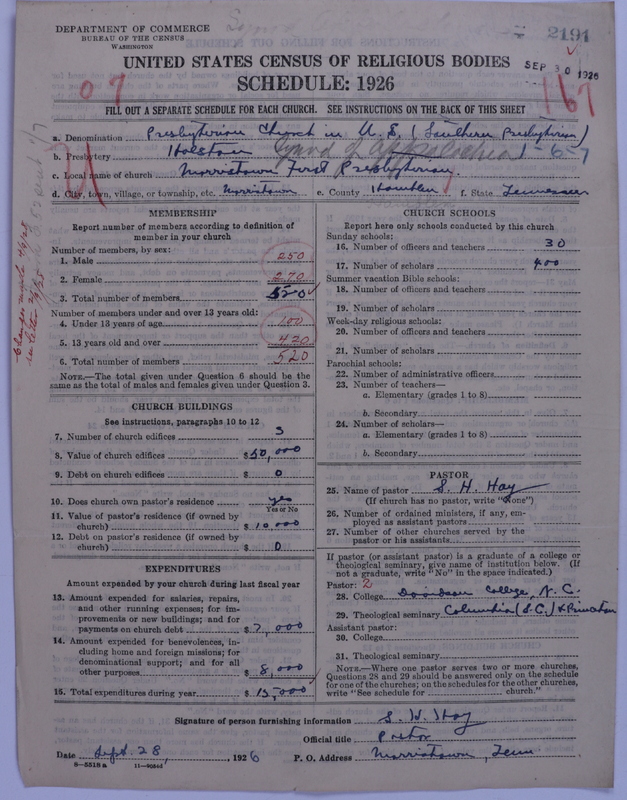 DEPARTMENT OF COMMERCE
BUREAU OF THE CENSUS
WASHINGTON
2191
UNITED STATES CENSUS OF RELIGIOUS BODIES
SEP 30 1926
SCHEDULE: 1926
07
167
FILL OUT A SEPARATE SCHEDULE FOR EACH CHURCH. SEE INSTRUCTIONS ON THE BACK OF THIS SHEET
a. Denomination Presbyterian Church in U.S. (Southern Presbyterian)
b. Presbytery Holston Synod of Appalachia 1-6-7
c. Local name of church Morristown First Presbyterian
d. City, town, village, or township, etc. Morristown e. County Hamblen f. State Tennessee
MEMBERSHIP
Report number of members according to definition of member in your church
Number of members, by sex:
1. Male 250
2. Female 270
3. Total number of members 520
Number of members under and over 13 years old:
4. Under 13 years of age 100
5. 13 years old and over 420
6. Total number of members 520
NOTE.—The total given under Question 6 should be the same as the total of males and females given under Question 3.
CHURCH BUILDINGS
See instructions, paragraphs 10 to 12
7. Number of church edifices 3
8. Value of church edifices $50,000
9. Debt on church edifices $ 0
10. Does church own pastor's residence yes
Yes or No
11. Value of pastor's residence (if owned by church) $ 10 000
12. Debt on pastor's residence (if owned by church) $ 0
EXPENDITURES
Amount expended by your church during last fiscal year
13. Amount expended for salaries, repairs, and other running expenses; for improvements or new buildings; and for payments on church debt $7,000
14. Amount expended for benevolences, including home and foreign missions; for denominational support; and for all other purposes $ 8,000
15. Total expenditures during year $ 15,000
CHURCH SCHOOLS
Report here only schools conducted by this church
Sunday schools:
16. Number of officers and teachers 30
17. Number of scholars 400
Summer vacation Bible schools:
18. Number of officers and teachers
19. Number of scholars
Week-day religious schools:
20. Number of officers and teachers
21. Number of scholars
Parochial schools:
22. Number of administrative officers
23. Number of teachers—
a. Elementary (grades 1 to 8)
b. Secondary
24. Number of scholars—
a. Elementary (grades 1 to 8)
b. Secondary
PASTOR
25. Name of pastor S. H. Hay
(If church has no pastor, write "None")
26. Number of ordained ministers, if any, employed as assistant pastors
27. Number of other churches served by the pastor or his assistants
If pastor (or assistant pastor) is a graduate of a college or theological seminary, give name of institution below. (If not a graduate, write "No" in the space indicated.)
Pastor: 2
28. College Davidson College, N.C.
29. Theological seminary Columbia (S.C.) & Princeton
Assistant pastor:
30. College
31. Theological seminary
NOTE.—Where one pastor serves two or more churches, Questions 28 and 29 should be answered only on the schedule for one of the churches; on the schedules for the other churches, write "See schedule for church."
Signature of person furnishing information S. H. Hay
Official title Pastor
Date Sept. 28, 1926 P. O. Address Morristown, Tenn
8—5518 a